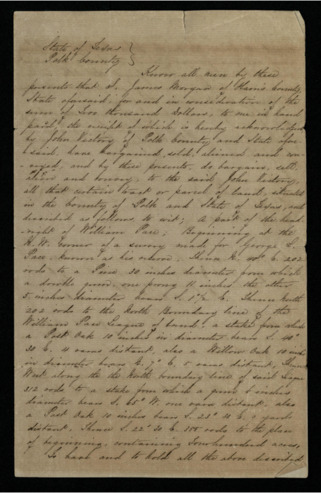 State of Texas }
Polk County }
Know all men by these
presents that I, James Morgan of Harris County
State aforesaid, for and in consideration of the
sum of Two thousand Dollars, to me in hand
paid, the receipt of which is hereby acknowledged
by John Victory of Polk County and State afore
said, have bargained, sold, aliened and
and by these presents, do bargain, sell,
alien and convey, to the said John Victory
all that certain tract or parcel of land, situated
in the County of Polk and State of Texas, and
described as follows to wit; A part of the head
right of William Pace; Beginning at the
N.W. corner of a survey made for George L.
Pace known as his
rods to a Pine 20 inches diameter from which
a double pine, one prong 10 inches the other
5 inches diameter bears S. E. Thence North
202 rods to the North Boundary line of the
William Pace League of land, a stake from which
a Post Oak 10 inches in diameter bears S.
30 E. 4 varas distant, also a Willow Oak 10 inches
in diameter bears E. 5 varas distant, Thence
West along the North boundary line of said League
212 rods to a stake from which a pine 5 inches
diameter bears S. 65° W. one vara distant, also
a Post Oak 10 inches bears S. 25° 10 E. 4 yards
distant. Thence S. 22° 30 E. 108 rods to the place
of beginning, containing Two hundred acres,
To have and to hold all the above described